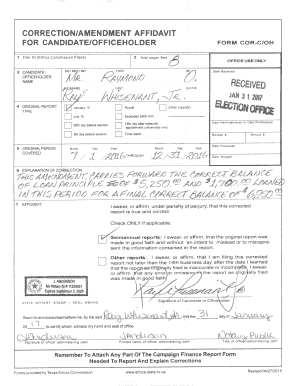 CORRECTION/AMENDMENT AFFIDAVIT
FOR CANDIDATE/OFFICEHOLDER
FORM COR-C/OH
1 Filer ID (Ethics Commission)
2 Total pages filed:
8
OFFICE USE ONLY
3 CANDIDATE/
OFFICEHOLDER
NAME
MR. RAYMOND O.
"RAY" WHISENANT, JR.
Date Received
RECEIVED
JAN 31 2017
ELECTION OFFICE
4 ORIGINAL REPORT
TYPE
January 15
July 15
30th day before election
8th day before election
Runoff
Exceeded $500 limit
Final report
Other (specify)
Date Hand-delivered or Date Postmarked
Receipt #
Amount $
Date Processed
Date Imaged
5 ORIGINAL PERIOD
COVERED
Month Day Year
7 / 1 / 2016 THROUGH 12/31/2016
6 EXPLANATION OF CORRECTION
THIS AMENDMENT CARRIES FORWARD THE CORRECT BALANCE
OF LOAN PRINCIPLE OF $5,250.00 AND $1,700.00 LOANED
IN THIS PERIOD FOR A FINAL CORRECT BALANCE OF $6,950.00
7 AFFIDAVIT
I swear, or affirm, under penalty of perjury, that this corrected
report is true and correct.
Check ONLY if applicable:
Semiannual reports: I swear, or affirm, that the original report was
made in good faith and without an intent to mislead or to misrepre-
sent the information contained in the report.
Other reports: I swear, or affirm, that I am filing this corrected
report not later than the 14th business day after the date I learned
that the report as originally filed is inaccurate or incomplete. I swear,
or affirm, that any error or omission in the report as originally filed
was made in good faith.
J. ANDERSON
Signature of Candidate or Officeholder
AFFIX NOTARY STAMP / SEAL ABOVE
Sworn to and subscribed before me, by the said Ray Whisenant Jr. this the 31 day of January
20 17, to certify which, witness my hand and seal of office.
J Anderson
Notary Public
Signature of officer administering oath
Printed name of officer administering oath
Title of officer administering oath
Remember To Attach Any Part Of The Campaign Finance Report Form
Needed To Report And Explain Corrections
Forms provided by Texas Ethics Commission
www.ethics.state.tx.us
Revised 04/27/2015